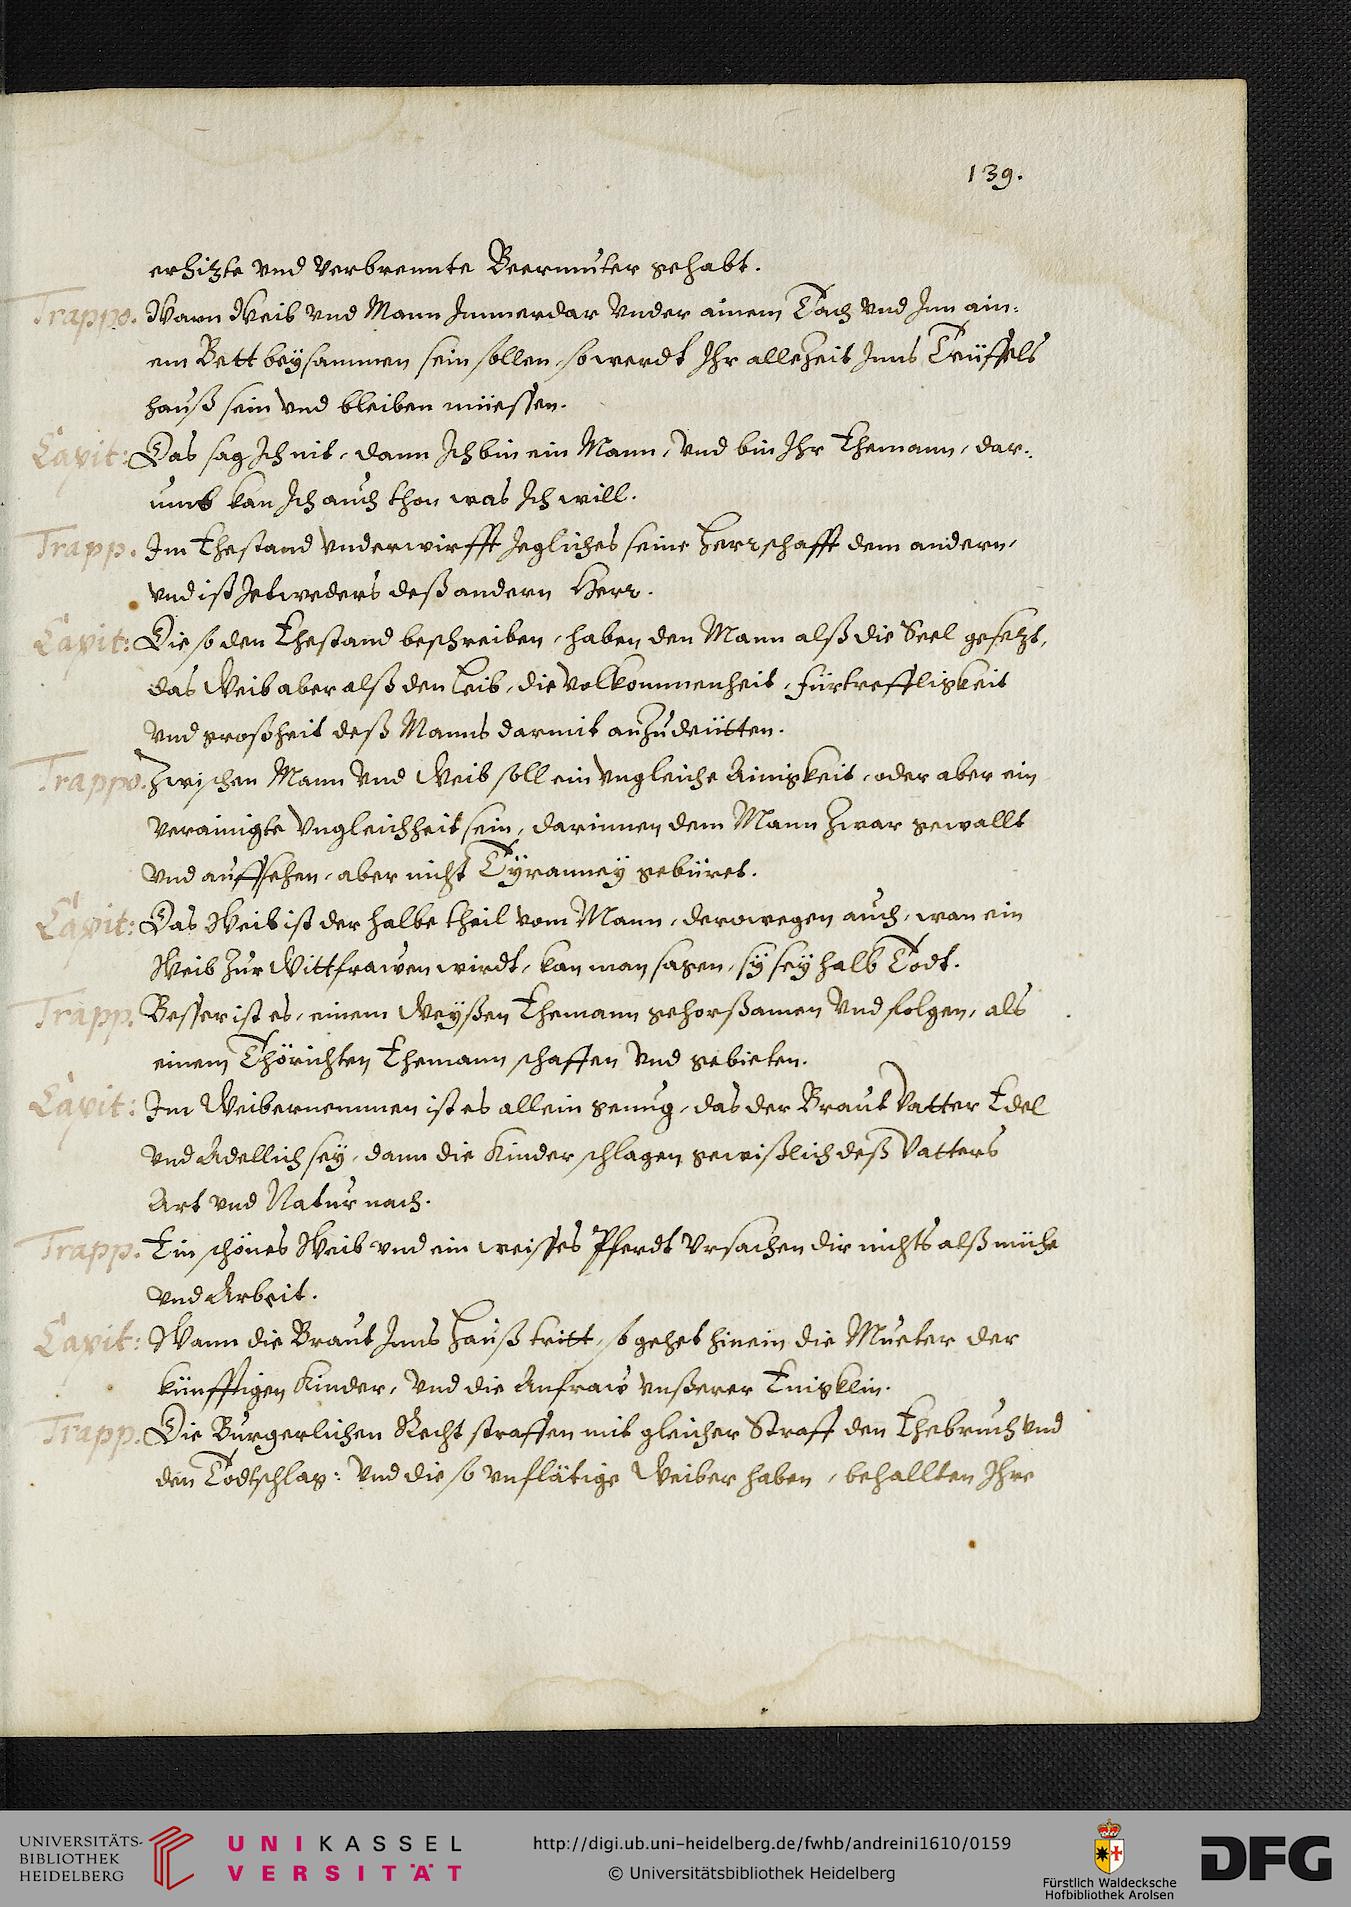 139.
erhizte vnd verbrennte Beermuter gehabt.
Trappo. Wann Weib vnd Mann Immerdar vnder ainem Tach vnd Inn ain:
em Bett beÿsammen sein sollen, so werdt Ihr allezeit Inns Teüffels
hauß sein vnd bleiben müessen.
Capit: Das sag Ich nit, dann Ich bin ein Mann, vnd bin Ihr Ehemann, dar:
umb kan Ich auch thon was Ich will.
Trapp. Im Ehestand vnderwirfft Jegliches seine Herrschafft dem andern,
vnd ist Jetweders deß andern Herr.
Capit: Die so den Ehestand beschreiben, haben den Mann alß die Seel gesetzt,
das Weib aber alß den Leib, die volkommenheit, fürtreffligkeit
vnd großheit deß Manns darmit anzudeütten.
Trappo. Zwischen Mann vnd Weib soll ein vngleiche Ainigkeit, oder aber ein
verainigte vngleichheit sein, darinnen dem Mann zwar gewallt
vnd auffsehen, aber nicht Tÿranneÿ gebüret.
Capit: Das Weib ist der halbe theil vom Mann, derowegen auch, wan ein
Weib zur Wittfrawen wirdt, kan man sagen, sÿ seÿ halb Todt.
Trapp. Besser ist es, einem Weÿßen Ehemann gehorßamen vnd folgen, als
einem Thörichten Ehemann schaffen vnd gebieten.
Capit: Im Weibernemmen ist es allein genug, das der Braut Vatter Edel
vnd Adellich seÿ, dann die Kinder schlagen gewißlich deß Vatters
Art vnd Natur nach.
Trapp. Ein schönes Weib vnd ein weisses Pferdt vrsachen dir nichts alß mühe
vnd Arbeit.
Capit: Wann die Braut Inns Hauß tritt, so gehet hinein die Mueter der
künfftigen Kinder, vnd die Anfraw vnßerer Enigklin.
Trapp. Die Burgerlichen Recht straffen mit gleicher Straff den Ehebruch vnd
den Todtschlag: vnd die so vnflätige Weiber haben, behallten Ihre
UNIVERSITÄTS-
BIBLIOTHEK
HEIDELBERG
UNIKASSEL
VERSITÄT
http://digi.ub.uni-heidelberg.de/fwhb/andreini1610/0159
© Universitätsbibliothek Heidelberg
Fürstlich Waldecksche
Hofbibliothek Arolsen
DFG